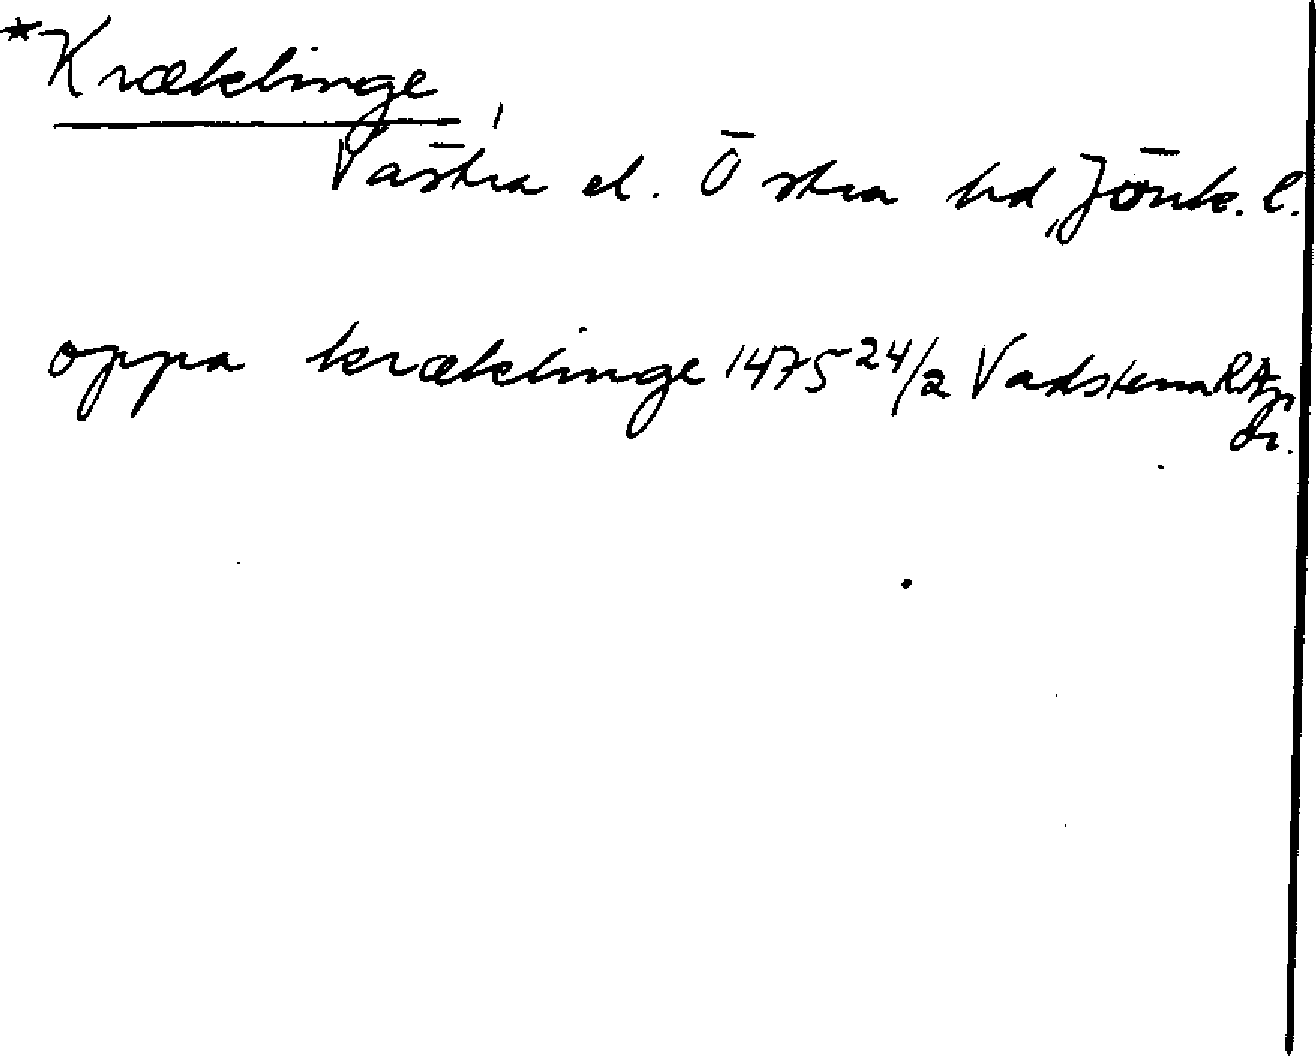 *Kræklinge,
Västra el. Östra hd, Jönk. l.
oppa kræklinge 1475 24/2 Vadstena RAp
Or.